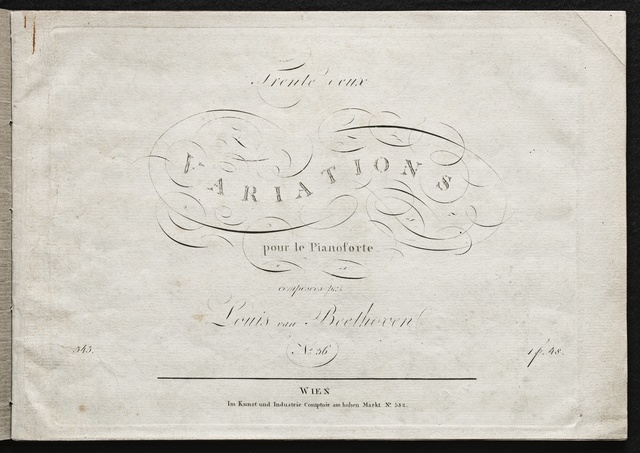 Trente deux
VARIATIONS
pour le Pianoforte
composées par
Louis van Beethoven
N.º 36
545.
1 f. 48.
WIEN
Im Kunst und Industrie Comptoir am hohen Markt N.º 582.